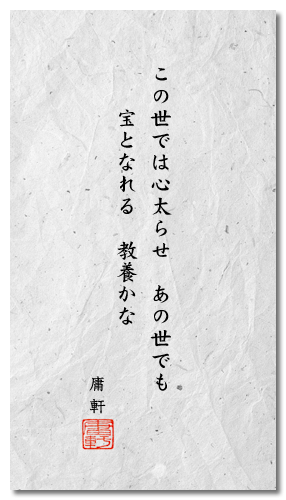 この世では心太らせ　あの世でも
宝となれる　教養かな
庸軒
庸軒